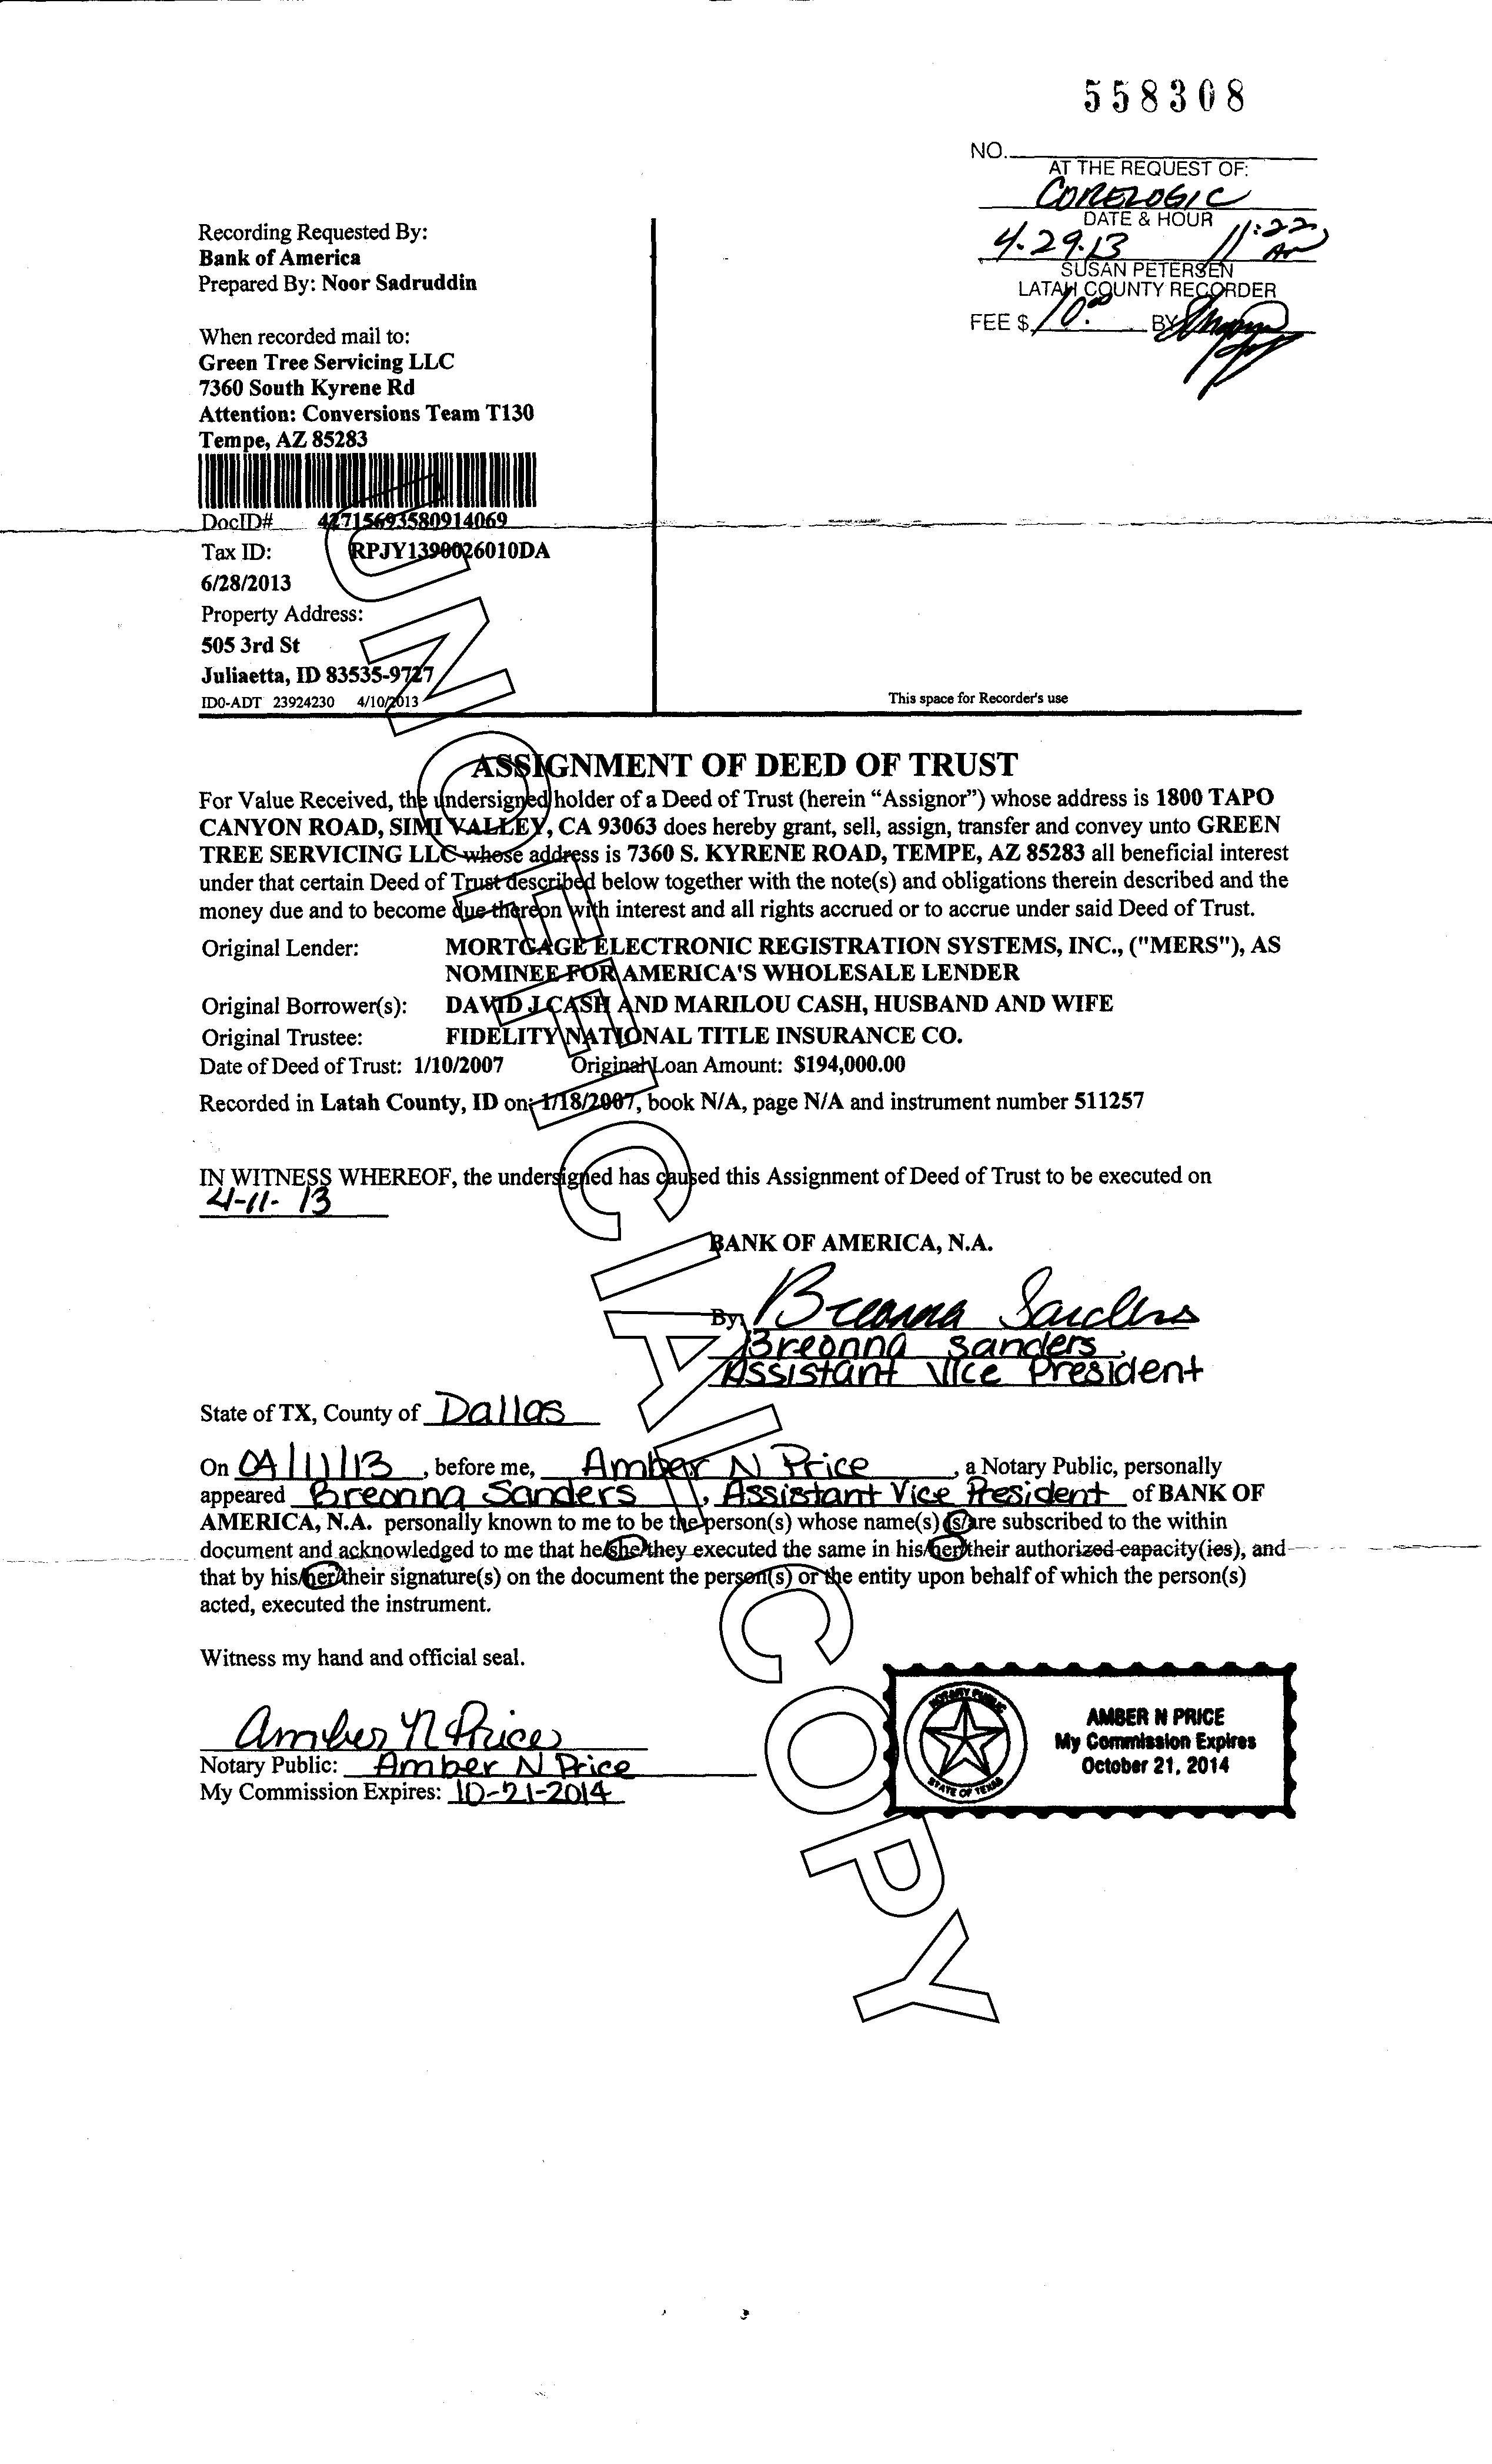 558308
NO.
AT THE REQUEST OF:
CORELOGIC
DATE & HOUR
4.29.13 11:22 AM
SUSAN PETERSEN
LATAH COUNTY RECORDER
FEE $ 10.00 BY
Recording Requested By:
Bank of America
Prepared By: Noor Sadruddin
When recorded mail to:
Green Tree Servicing LLC
7360 South Kyrene Rd
Attention: Conversions Team T130
Tempe, AZ 85283
DocID# 42715693580914069
Tax ID: RPJY1390026010DA
6/28/2013
Property Address:
505 3rd St
Juliaetta, ID 83535-9727
ID0-ADT 23924230 4/10/2013
This space for Recorder's use
ASSIGNMENT OF DEED OF TRUST
For Value Received, the undersigned holder of a Deed of Trust (herein “Assignor”) whose address is 1800 TAPO
CANYON ROAD, SIMI VALLEY, CA 93063 does hereby grant, sell, assign, transfer and convey unto GREEN
TREE SERVICING LLC whose address is 7360 S. KYRENE ROAD, TEMPE, AZ 85283 all beneficial interest
under that certain Deed of Trust described below together with the note(s) and obligations therein described and the
money due and to become due thereon with interest and all rights accrued or to accrue under said Deed of Trust.
Original Lender: MORTGAGE ELECTRONIC REGISTRATION SYSTEMS, INC., ("MERS"), AS
NOMINEE FOR AMERICA'S WHOLESALE LENDER
Original Borrower(s): DAVID J CASH AND MARILOU CASH, HUSBAND AND WIFE
Original Trustee: FIDELITY NATIONAL TITLE INSURANCE CO.
Date of Deed of Trust: 1/10/2007 Original Loan Amount: $194,000.00
Recorded in Latah County, ID on: 1/18/2007, book N/A, page N/A and instrument number 511257
IN WITNESS WHEREOF, the undersigned has caused this Assignment of Deed of Trust to be executed on
4-11-13
BANK OF AMERICA, N.A.
By: Breonna Sanders
Breonna Sanders,
Assistant Vice President
State of TX, County of Dallas
On 04/11/13, before me, Amber N Price, a Notary Public, personally
appeared Breonna Sanders, Assistant Vice President of BANK OF
AMERICA, N.A. personally known to me to be the person(s) whose name(s) is/are subscribed to the within
document and acknowledged to me that he/she/they executed the same in his/her/their authorized capacity(ies), and
that by his/her/their signature(s) on the document the person(s) or the entity upon behalf of which the person(s)
acted, executed the instrument.
Witness my hand and official seal.
Amber N Price
Notary Public: Amber N Price
My Commission Expires: 10-21-2014
NOTARY PUBLIC
STATE OF TEXAS
AMBER N PRICE
My Commission Expires
October 21, 2014
UNOFFICIAL COPY